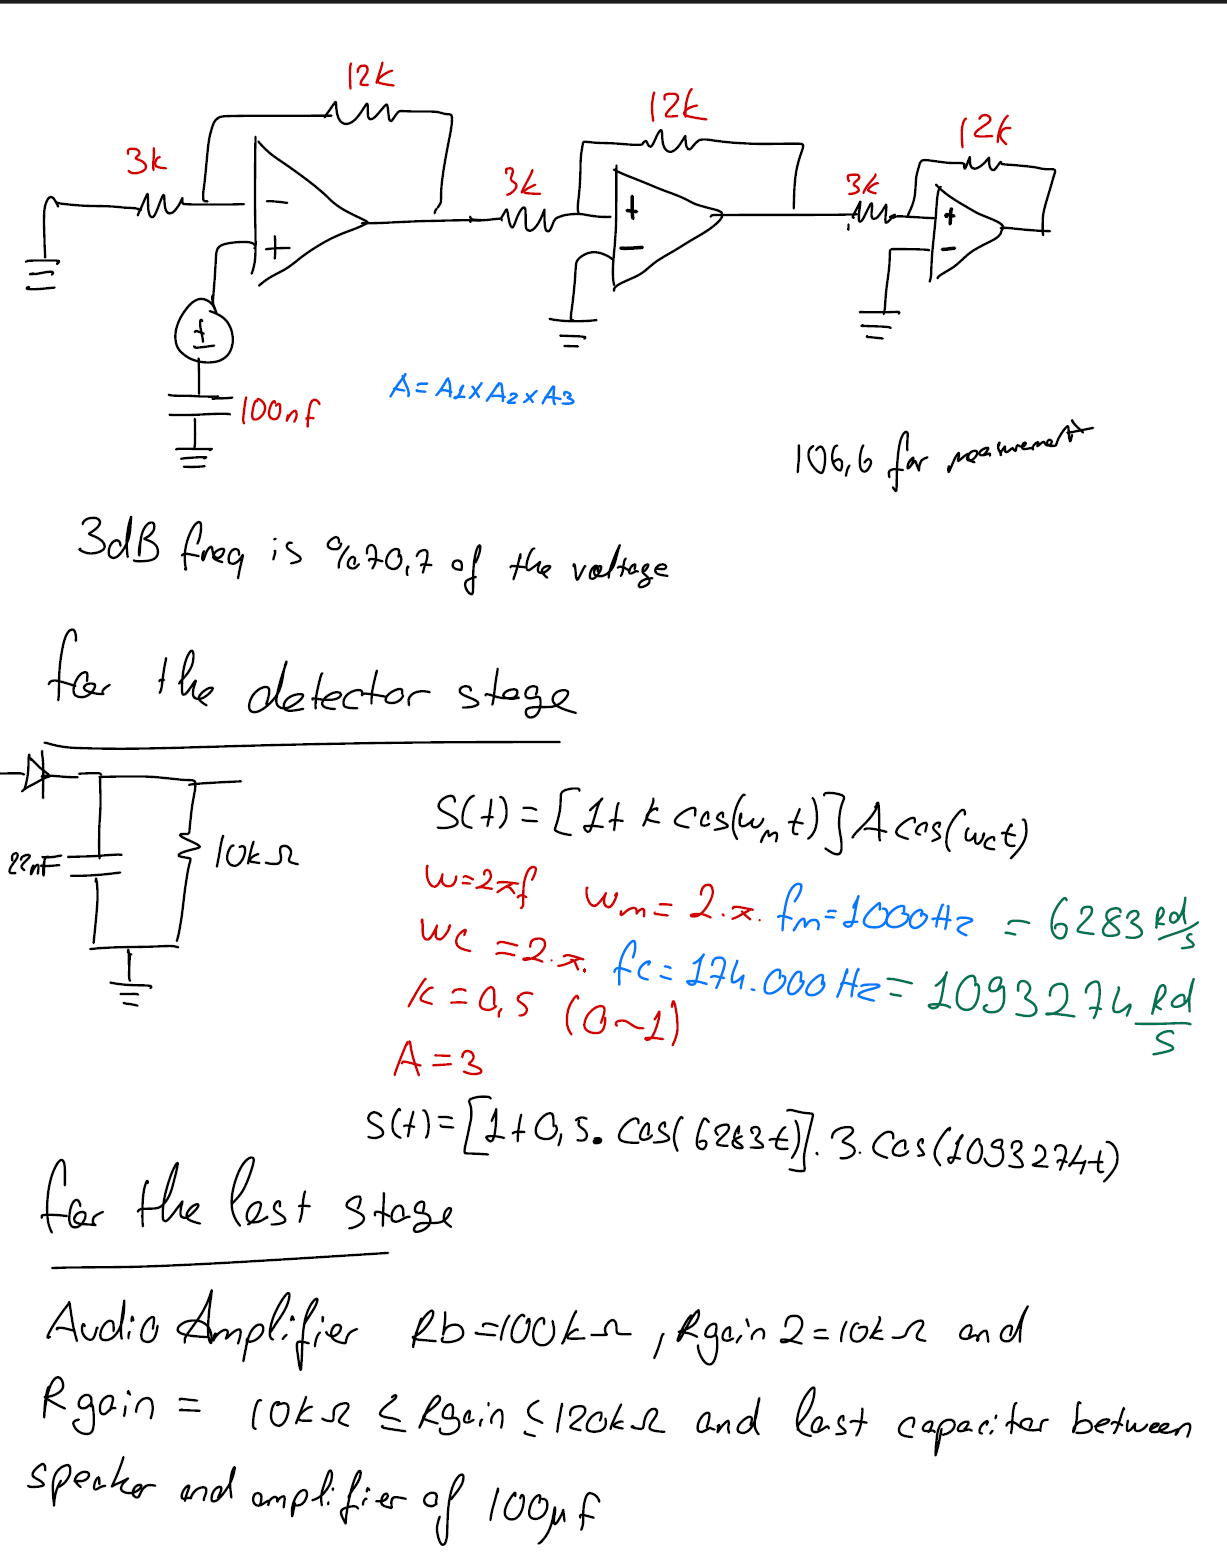 12k
12k
12k
3k
3k
3k
-
+
+
-
+
-
±
100nf
A = A1 x A2 x A3
106,6 for measurement
3dB freq is %70,7 of the voltage
for the detector stage
22nF
10kΩ
S(t) = [1+ k cos(wmt)] A cos(wct)
w=2πf wm = 2.π. fm=1000Hz = 6283 Rd/s
wc = 2.π. fc = 174.000 Hz = 1093274 Rd/s
k = 0,5 (0~1)
A = 3
s(t) = [1+0,5. Cos(6283t)]. 3. Cos(1093274t)
for the last stage
Audio Amplifier Rb=100kΩ, Rgain 2 = 10kΩ and
Rgain = 10kΩ ≤ Rgain ≤ 120kΩ and last capacitor between
speaker and amplifier of 100μf